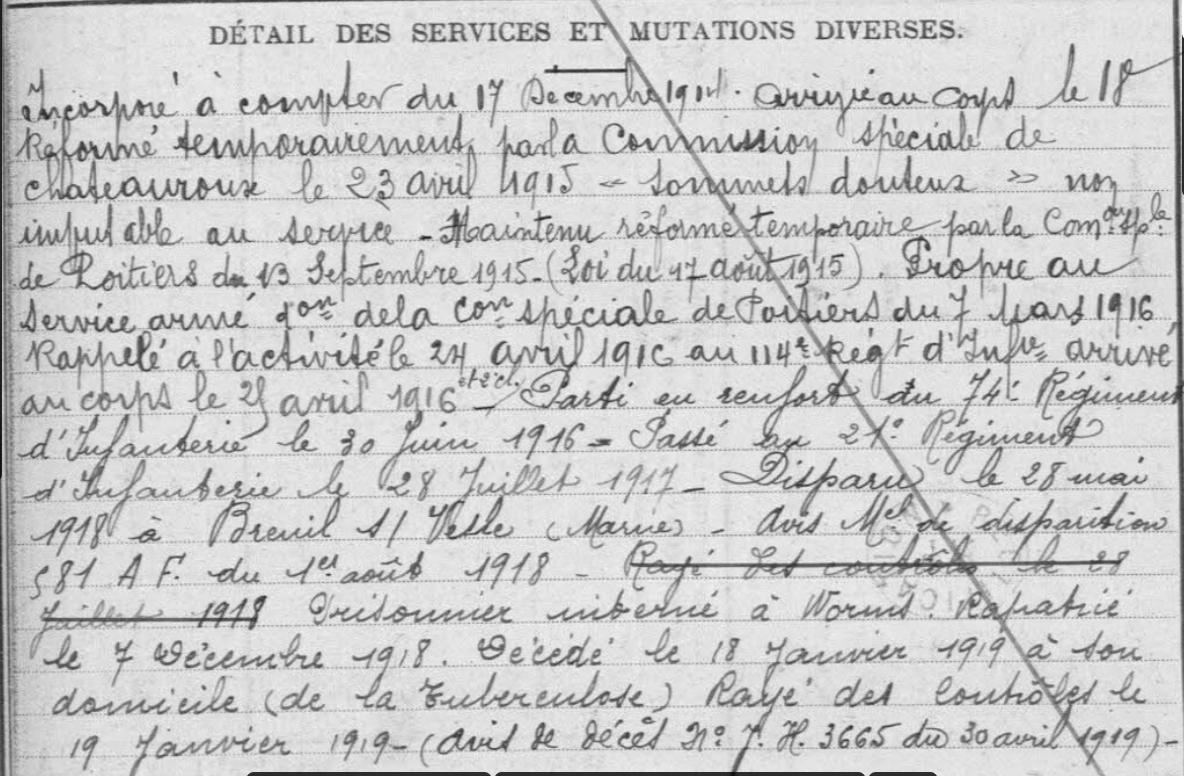 DÉTAIL DES SERVICES ET MUTATIONS DIVERSES.
Incorporé à compter du 17 Décembre 1914. arrivé au corps le 18
Réformé temporairement par la Commission spéciale de
Chateauroux le 23 avril 1915 - « Sommets douteux » non
imputable au service - Maintenu réformé temporaire par la Comon sple
de Poitiers du 13 Septembre 1915 - (Loi du 17 août 1915). Propre au
Service armé don de la Con spéciale de Poitiers du 7 Mars 1916
Rappelé à l'activité le 24 avril 1916 au 114e Régt d'Infie arrivé
au corps le 25 avril 1916 et 2 cl. - Parti en renfort du 74e Régiment
d'Infanterie le 30 Juin 1916 - Passé au 21e Régiment
d'Infanterie le 28 Juillet 1917 - Disparu le 28 mai
1918 à Breuil s/ Vesle (Marne) - Avis Mel de disparition
581 A F. du 1er août 1918 - Rayé des contrôles le 28
Juillet 1918 Prisonnier interné à Worms. Rapatrié
le 7 Décembre 1918. Décédé le 18 Janvier 1919 à son
domicile (de la Tuberculose) Rayé des Contrôles le
19 Janvier 1919 - (avis de décès No J. H. 3665 du 30 avril 1919) -